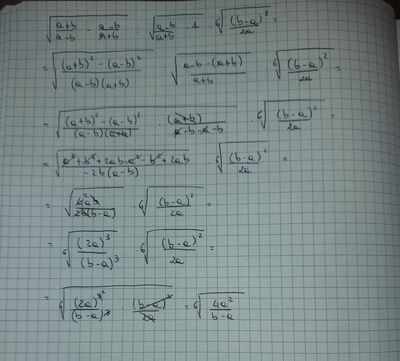 √((a+b)/(a-b) - (a-b)/(a+b)) · √((a-b)/(a+b) - 1) · ⁶√((b-a)²/2a) =
= √(((a+b)² - (a-b)²)/((a-b)(a+b))) √((a-b-(a+b))/(a+b)) ⁶√((b-a)²/2a) =
= √(((a+b)² - (a-b)²)/((a-b)(a+b)) · (a+b)/(a-b-a-b)) · ⁶√((b-a)²/2a) =
= √((a²+b²+2ab-a²-b²+2ab)/(-2b(a-b))) · ⁶√((b-a)²/2a) =
= √(4ab/(2b(b-a))) · ⁶√((b-a)²/2a) =
= ⁶√((2a)³/(b-a)³) · ⁶√((b-a)²/2a) =
= ⁶√((2a)³²/(b-a)³ · (b-a)²/2a) = ⁶√(4a²/(b-a))